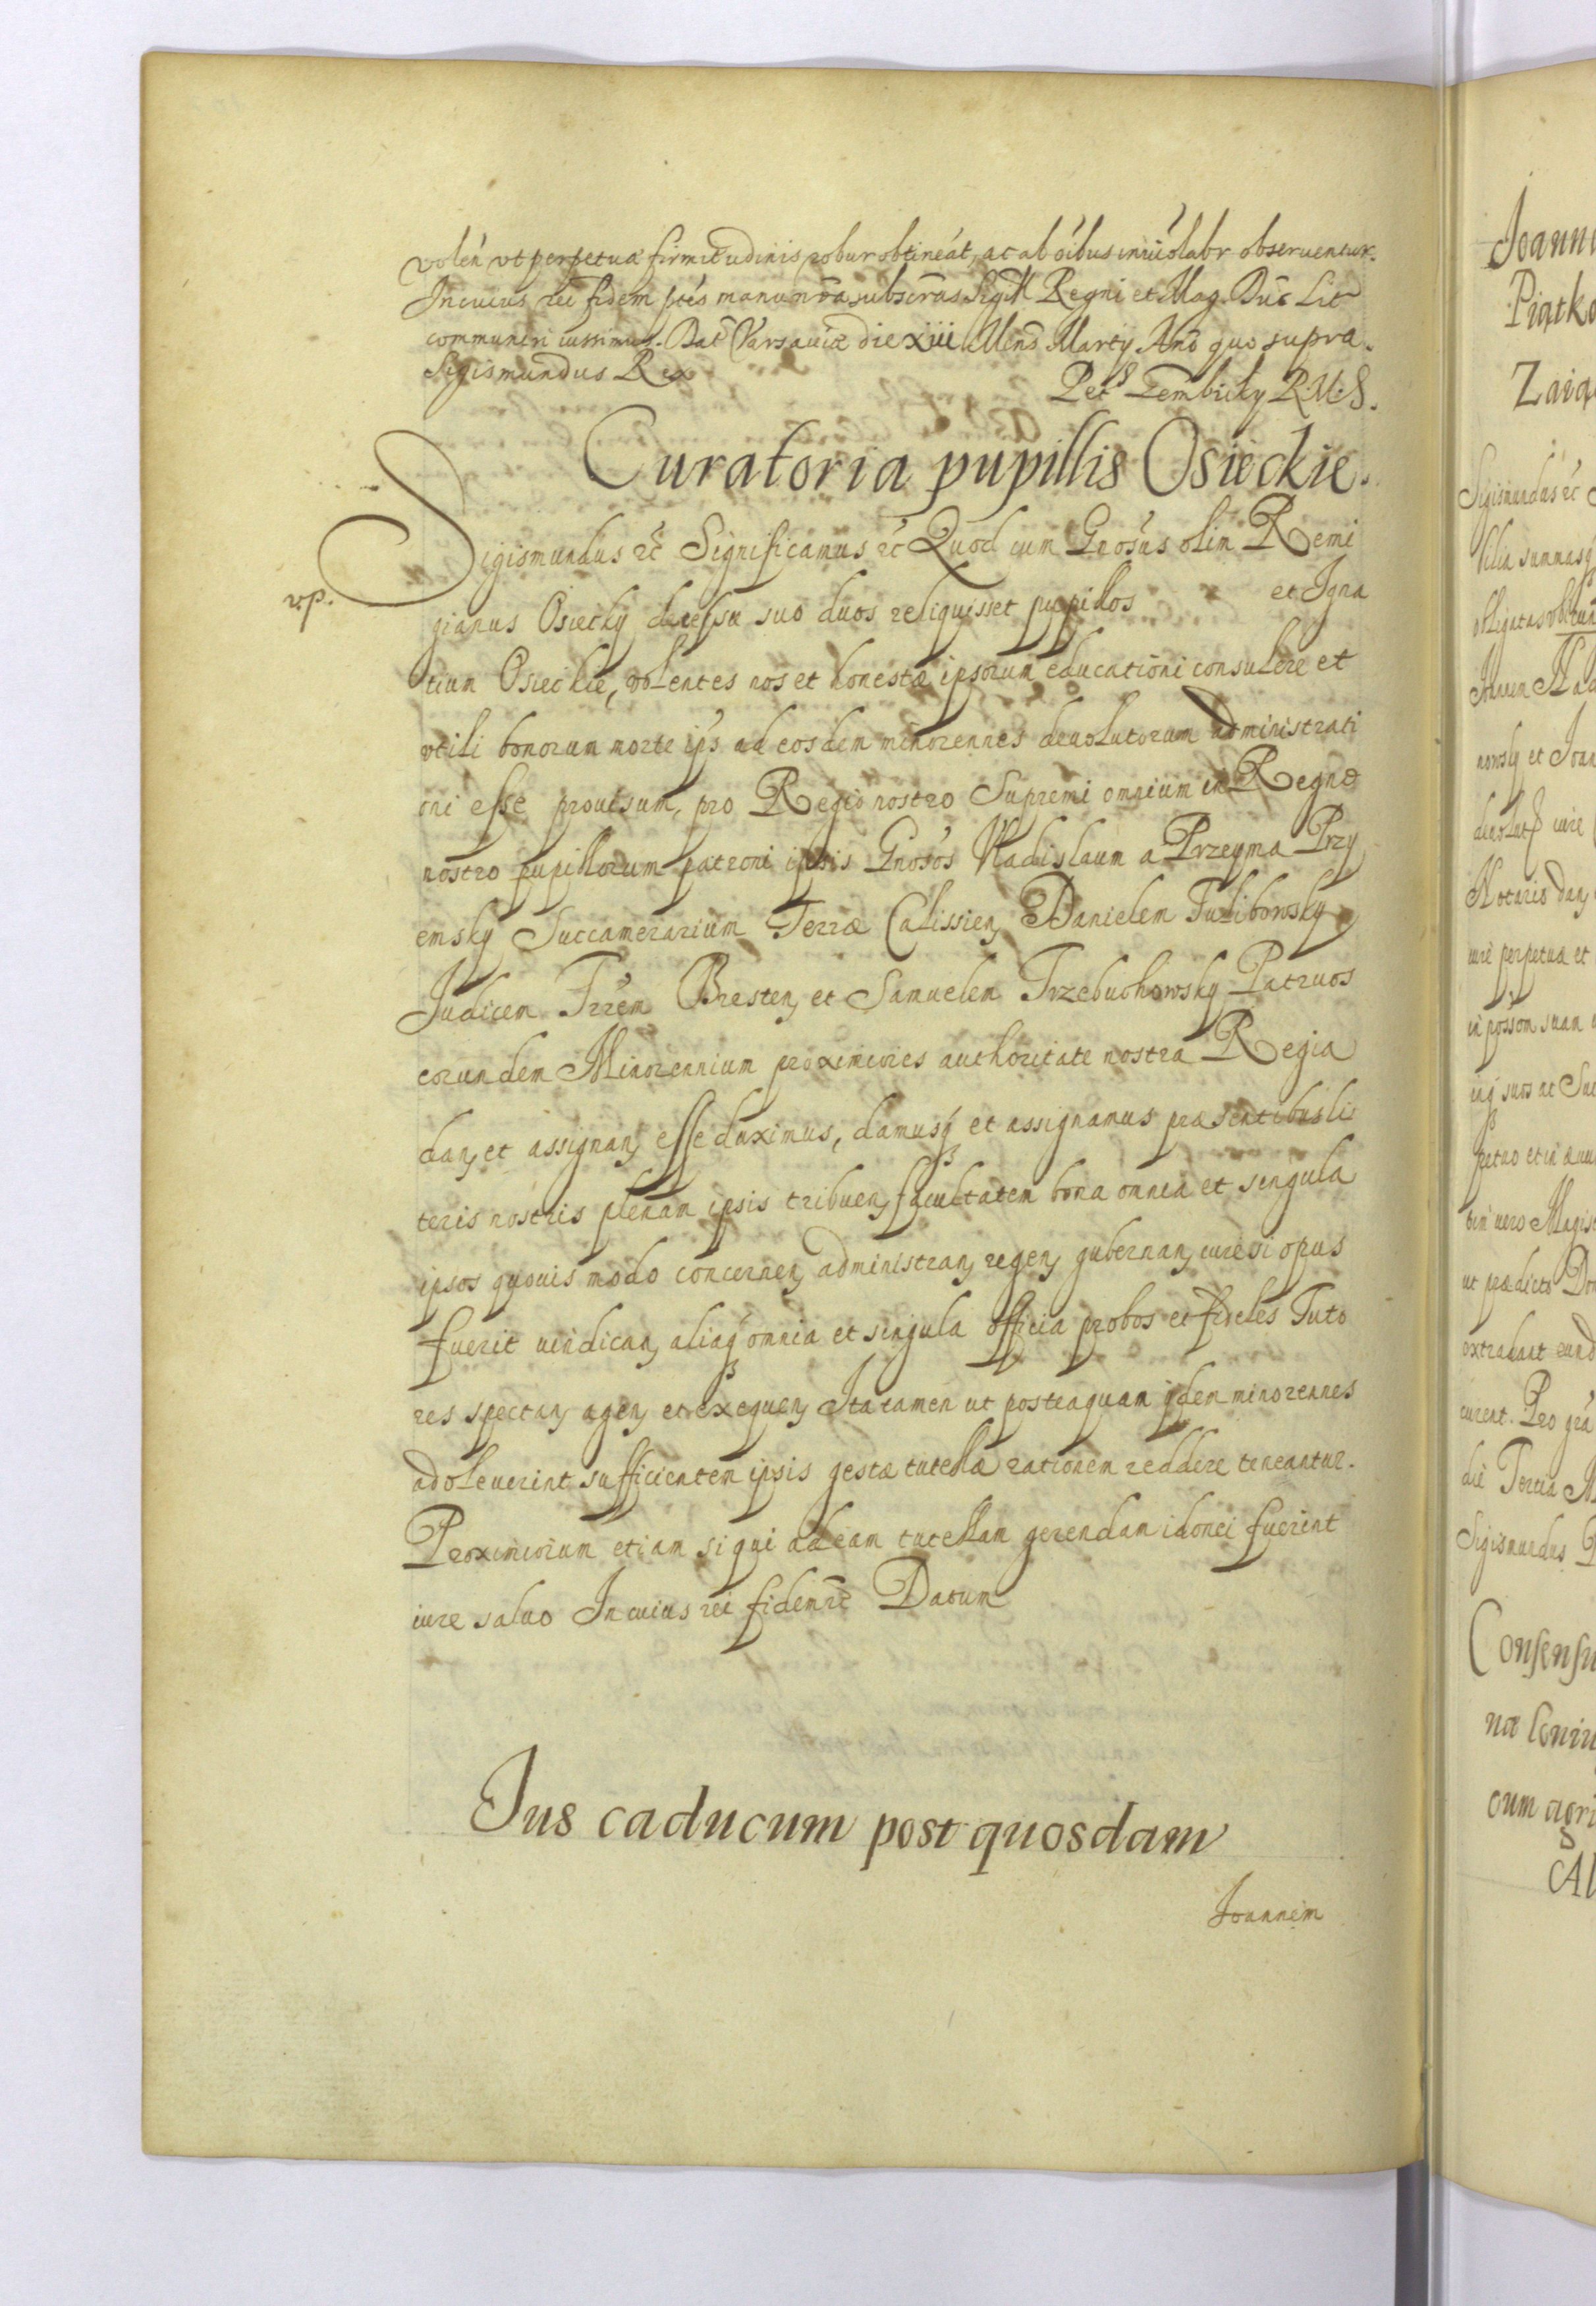 volen̄ vt perpetuæ firmitudinis robur obtineāt, ac ab oībus inuiolabr̄ obseruentur.
In cuius rei fidem p̄tēs manu nr̄a subscrās Sigill Regni et Mag. Duc̄ Lit
communiri iussimus. Dat̄ Varsauiæ die xiii Mens̄ Martij Anō quo supra.
Sigismundus Rex
Pets Tembicky R.M.S.
Curatoria pupillis Osieckie.
Sigismundus ec̄ Significamus ec̄ Quod cum Gnōsus olim Remi
vp.
gianus Osiecky decessu suo duos reliquisset pupillos et Igna
tium Osieckie, volentes nos et honestæ ipsorum educationi consulere et
vtili bonorum morte ip̄s ad eosdem minorennes deuolutorum administrati
oni esse prouisum, pro Regio nostro Supremi omnium in Regno
nostro pupillorum patroni ipsis Gnōsos Vladislaum a Przeyma Przy
emsky Succamerarium Terræ Calissien, Danielem Tulibowsky
Iudicem Trr̄em Bresten, et Samuelem Trzebuchowsky Patruos
eorundem Minorennium proximiores authoritate nostra Regia
dan, et assignan, esse duximus, damusq̨ et assignamus præsentibus li
teris nostris plenam ipsis tribuen, facultatem bona omnia et singula
ipsos quouis modo concernen, administran, regen, gubernan, iure si opus
fuerit uindican, aliaq̨ omnia et singula officia probos et fideles Tuto
res spectan, agen, et exequen, Ita tamen ut posteaquam ijdem minorennes
adoleuerint sufficientem ipsis gestæ tutellæ rationem reddere teneantur.
Proximiorum etiam si qui ad eam tutellam gerendam idonei fuerint
iure saluo In cuius rei fidem ec̄ Datum
Ius caducum post quosdam
Joannem
Joann
Piątko
Zaią
Sigismundus ec̄
obligatas
nowsky et Joan
Notario dan,
iure perpetua et
in pos̄som suam
petuo et in æuu
ut prædicto Do
extrahant eund
curent. Pro
die Tertia M
Sigismundus R
Consensu
næ coniu
cum agri
Al